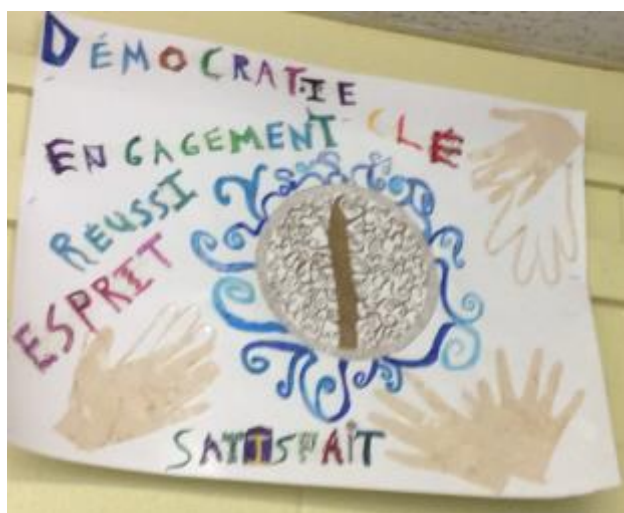 DÉMOCRATIE
ENGAGEMENT CLÉ
RÉUSSI
ESPRIT
SATISFAIT